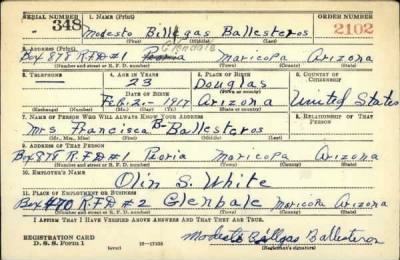 SERIAL NUMBER 1. NAME (Print) ORDER NUMBER
348 Modesto Billegas Ballesteros 2102
Glendale
2. ADDRESS (Print)
Box 878 R.F.D #1 Peoria Maricopa Arizona
(Number and street or R. F. D. number) (Town) (County) (State)
3. TELEPHONE 4. AGE IN YEARS 5. PLACE OF BIRTH 6. COUNTRY OF CITIZENSHIP
23 Douglas
DATE OF BIRTH (Town or county)
Feb. 20 1917 Arizona United States
(Exchange) (Number) (Mo.) (Day) (Yr.) (State or country)
7. NAME OF PERSON WHO WILL ALWAYS KNOW YOUR ADDRESS 8. RELATIONSHIP OF THAT PERSON
Mrs Francisca B- Ballesteros
(Mr., Mrs., Miss) (First) (Middle) (Last)
9. ADDRESS OF THAT PERSON
Box 878 R.F.D #1 Peoria Maricopa Arizona
(Number and street or R. F. D. number) (Town) (County) (State)
10. EMPLOYER'S NAME
Olin S. White
11. PLACE OF EMPLOYMENT OR BUSINESS
Box 470 R.F.D #2 Glendale Maricopa Arizona
(Number and street or R. F. D. number) (Town) (County) (State)
I AFFIRM THAT I HAVE VERIFIED ABOVE ANSWERS AND THAT THEY ARE TRUE.
REGISTRATION CARD
D. S. S. Form 1 Modesto Billegas Ballesteros
(Registrant's signature)